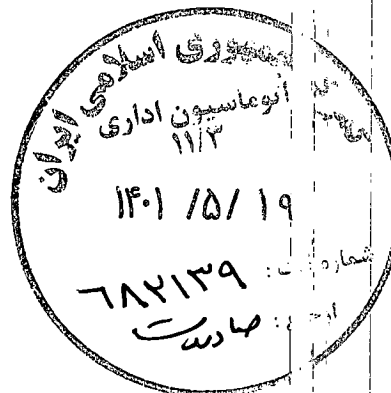 جمهوری اسلامی ایران
اتوماسیون اداری
۱۱/۳
۱۴۰۱ /۵/ ۱۹
شماره : ۶۸۲۱۳۹